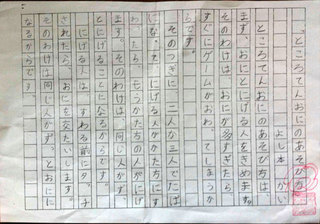 ところてんおにのあそびかた
よし本
ところてんおにのあそび方は、
まず、おにとにげる人をきめます。
そのわけは、おにが多すぎたら
すぐにゲームがおわってしまうか
らです。
そのつぎに、二人か三人でたば
になって、にげる人がたばに
わったら、もうかたほうの人がにげ
ます。そのわけは、同じ人がずっ
とにげることになるからです。
にげる人は、すわる前にタッチ
されたら、おにを交たいします。
そのわけは同じ人がずっとおにに
なるからです。